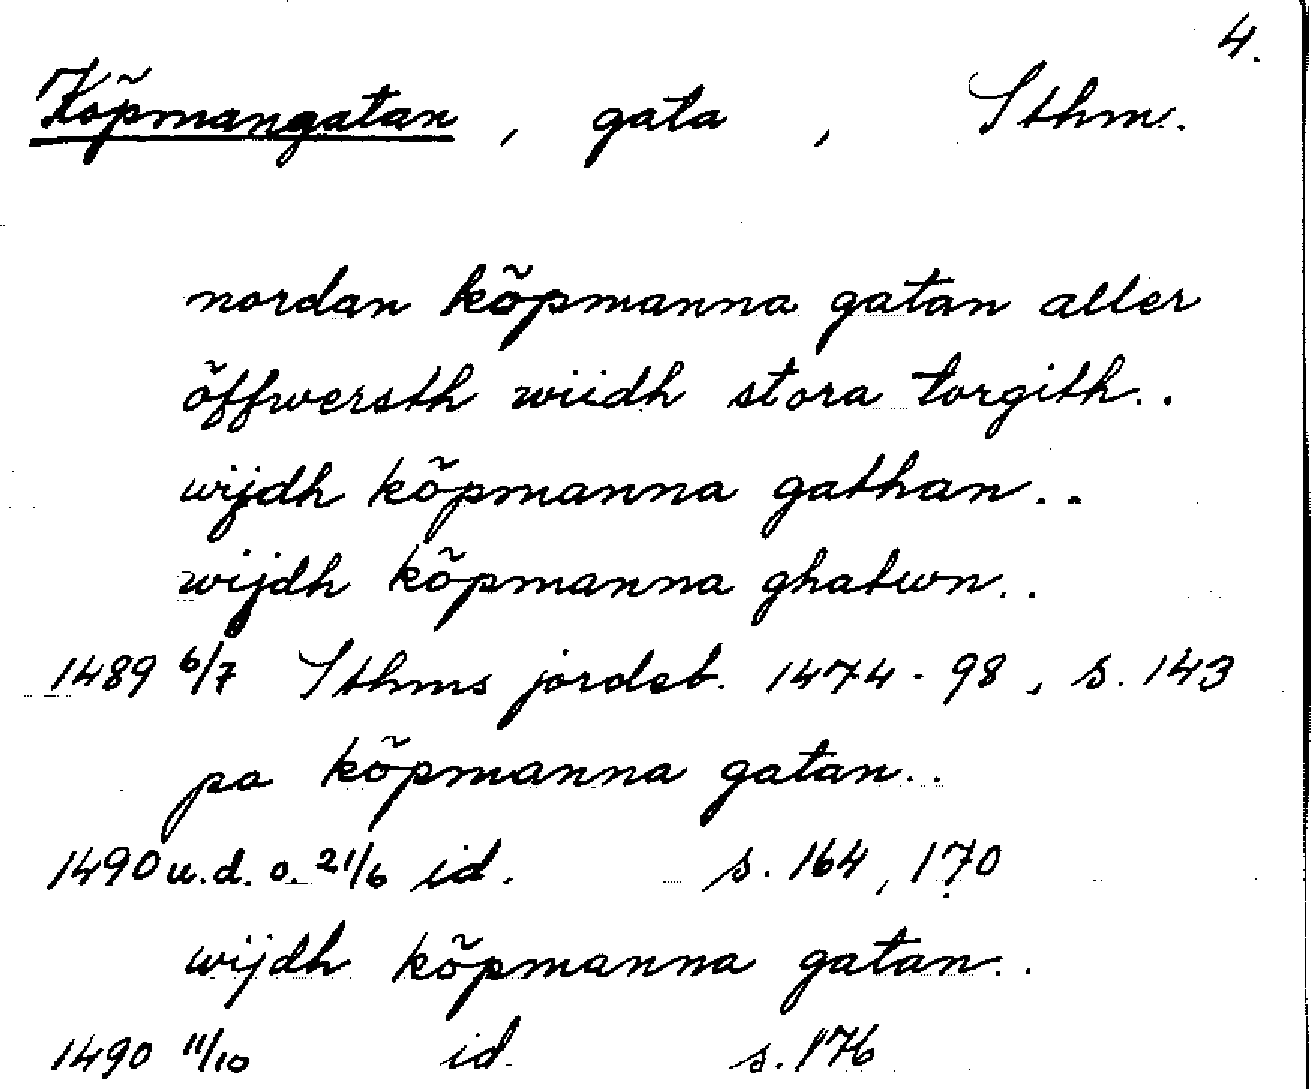 4.
Köpmangatan, gata, Sthm.
nordan köpmanna gatan aller
öffwersth wiidh stora torgith..
wijdh köpmanna gathan..
wijdh köpmanna ghatwn..
1489 6/7 Sthms jordeb. 1474-98, s. 143
pa köpmanna gatan..
1490 u.d. o. 21/6 id. s. 164, 170
wijdh köpmanna gatan..
1490 11/10 id. s. 176